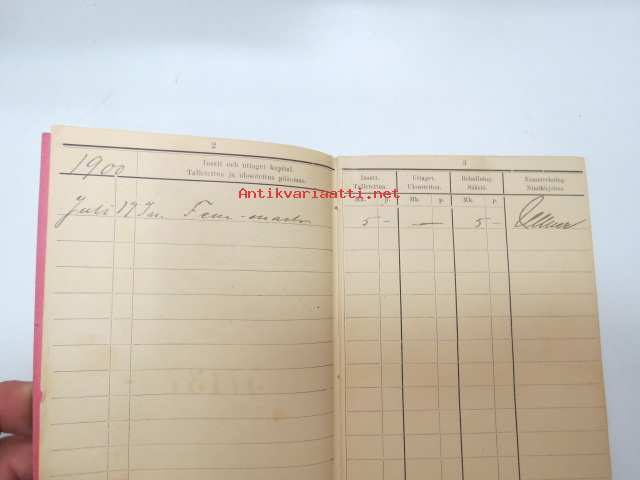 2
1900
Insatt och uttaget kapital.
Talletettua ja ulosotettua pääomaa.
Juli 17 Ins. Fem mark
3
Insatt. Uttaget. Behållning. Namnteckning.
Talletettua. Ulosotettua. Säästö. Nimikirjoitus.
Mk. p. Mk. p. Mk. p.
5 – — 5 –
Antikvariaatti.net